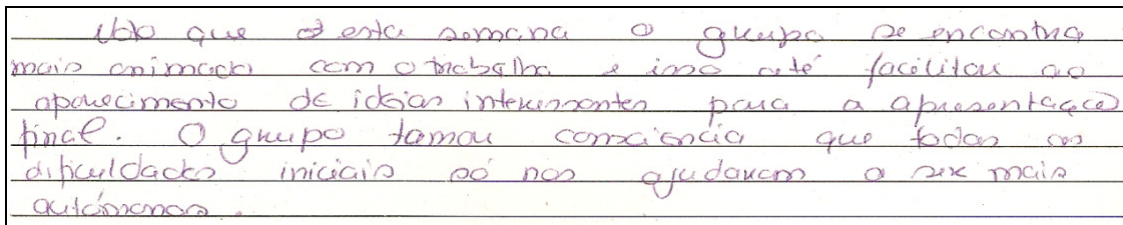 Noto que esta semana o grupo se encontra
mais animado com o trabalho e isso até facilitou ao
aparecimento de ideias interessantes para a apresentação
final. O grupo tomou consciência que todas as
dificuldades iniciais só nos ajudaram a ser mais
autónomos.